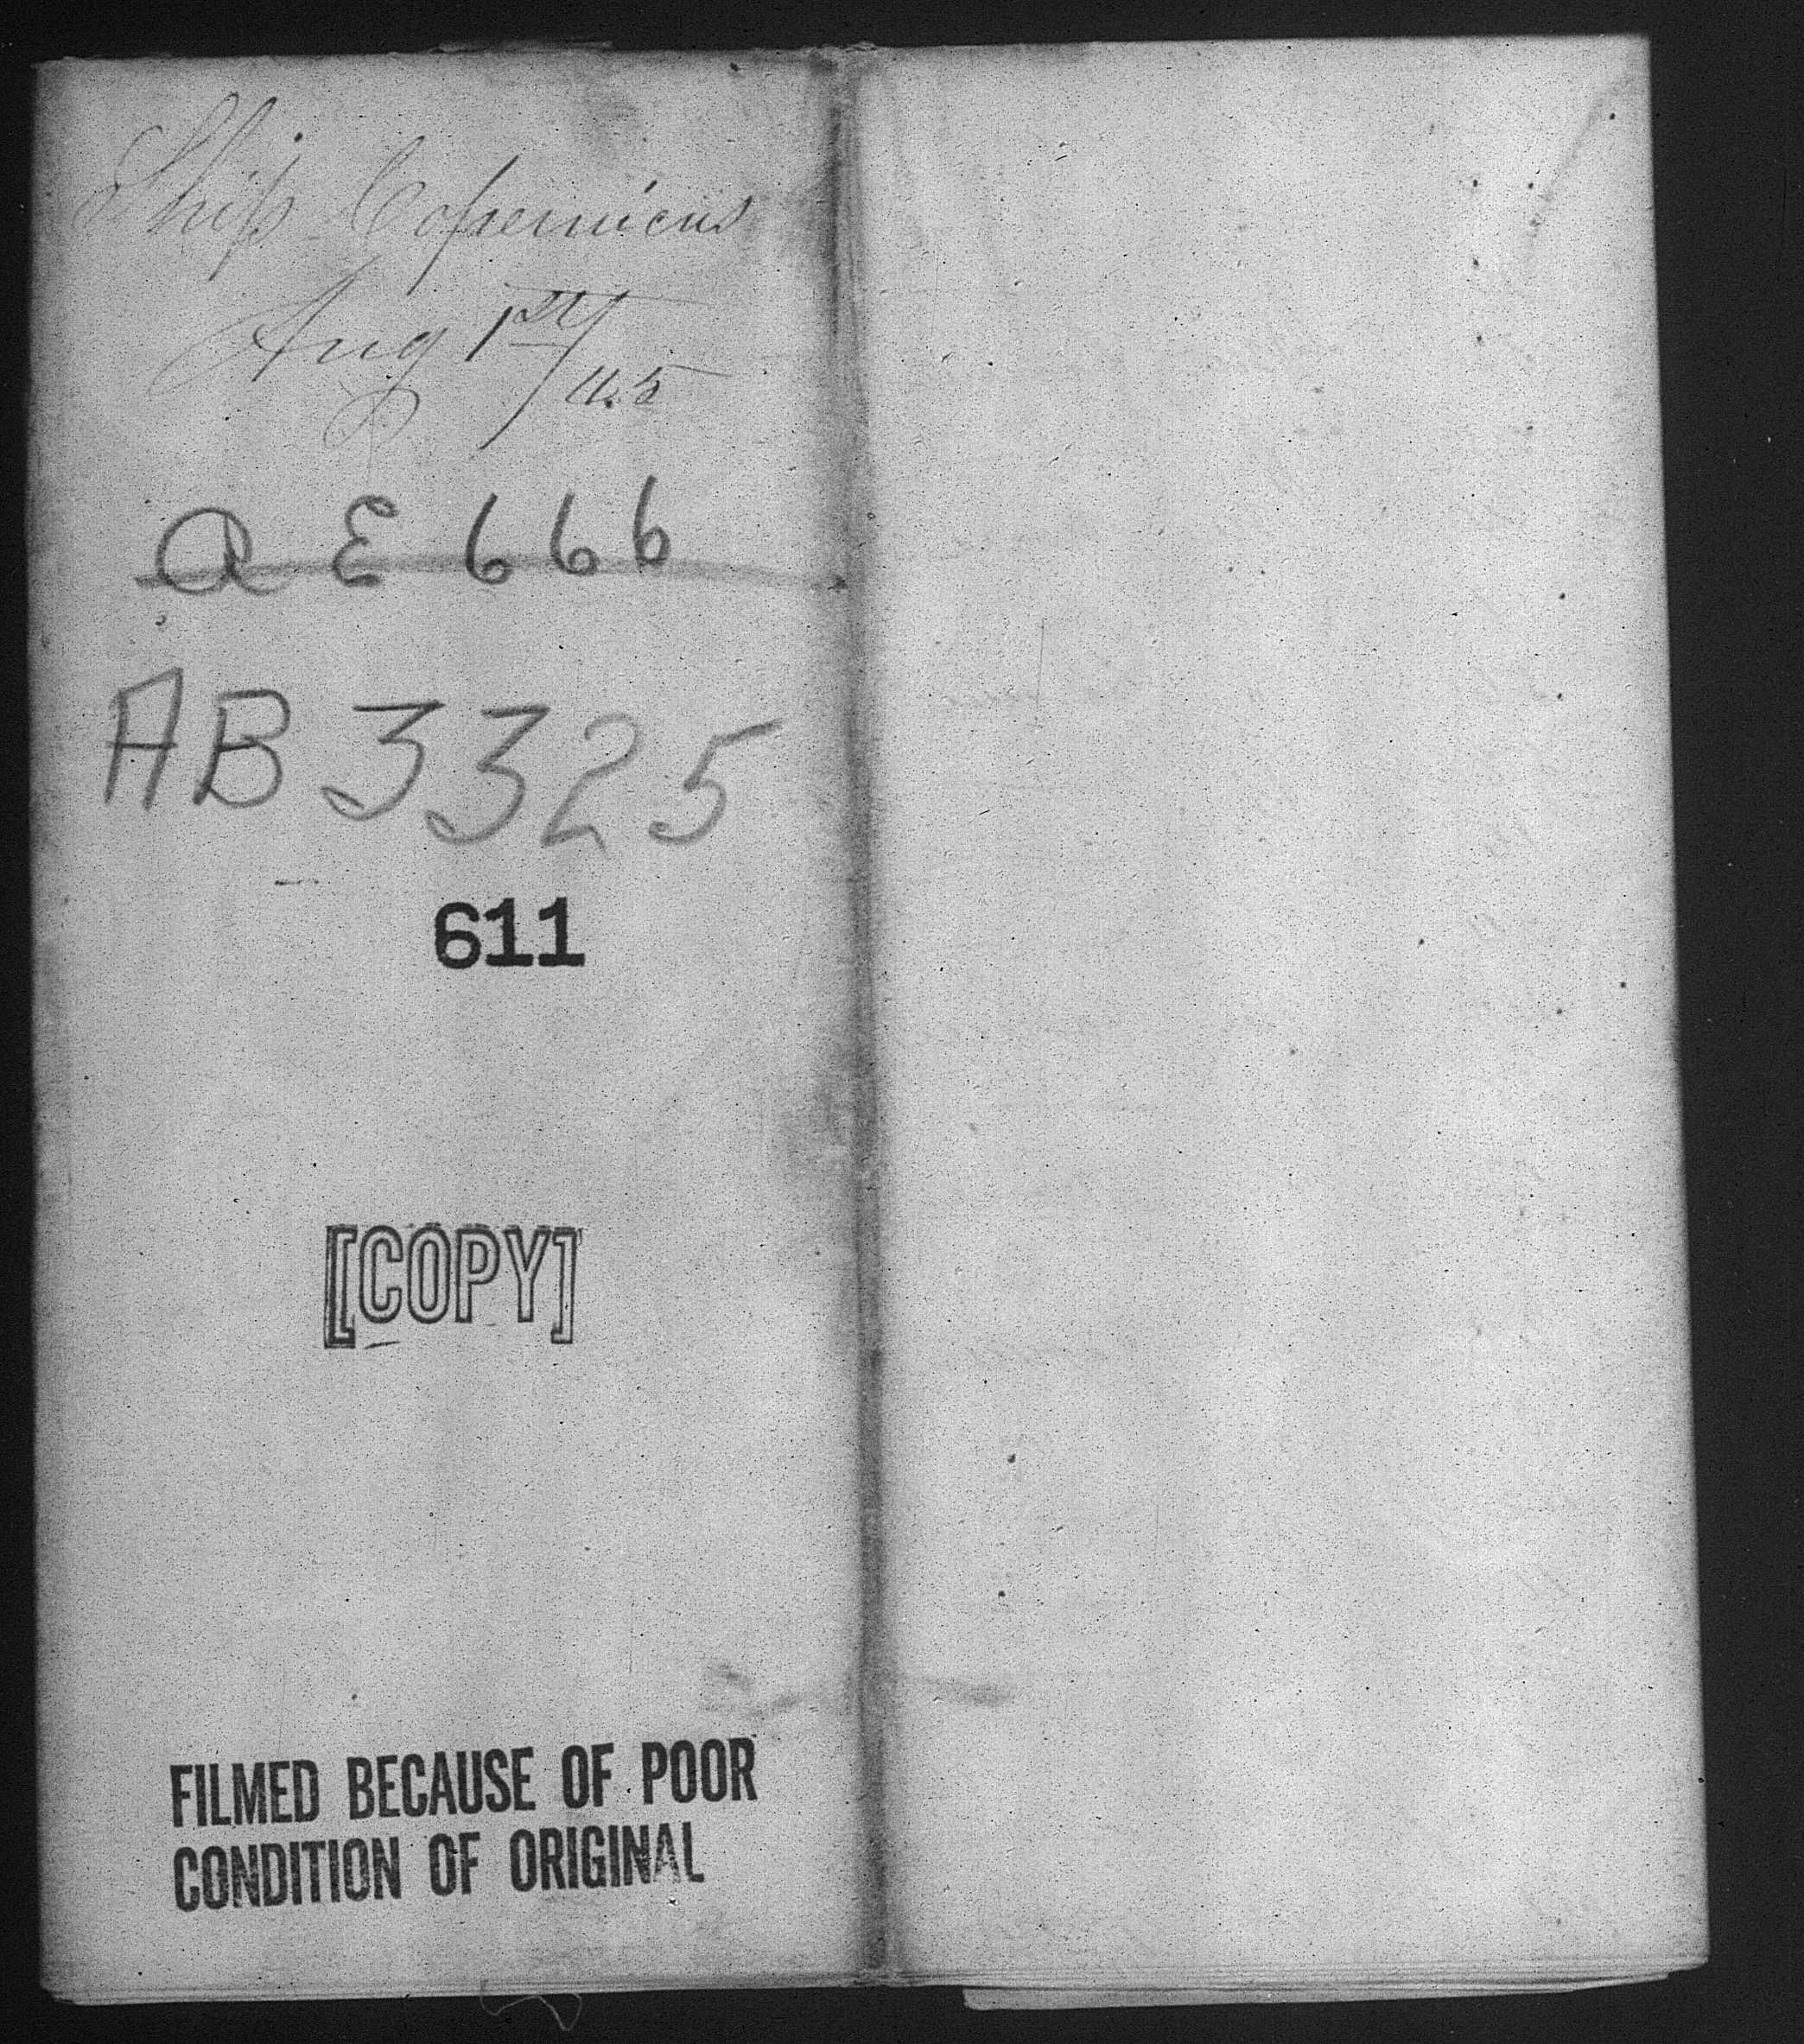 Ship Copernicus
Aug 1st/45
A E 666
AB 3325
611
[COPY]
FILMED BECAUSE OF POOR
CONDITION OF ORIGINAL